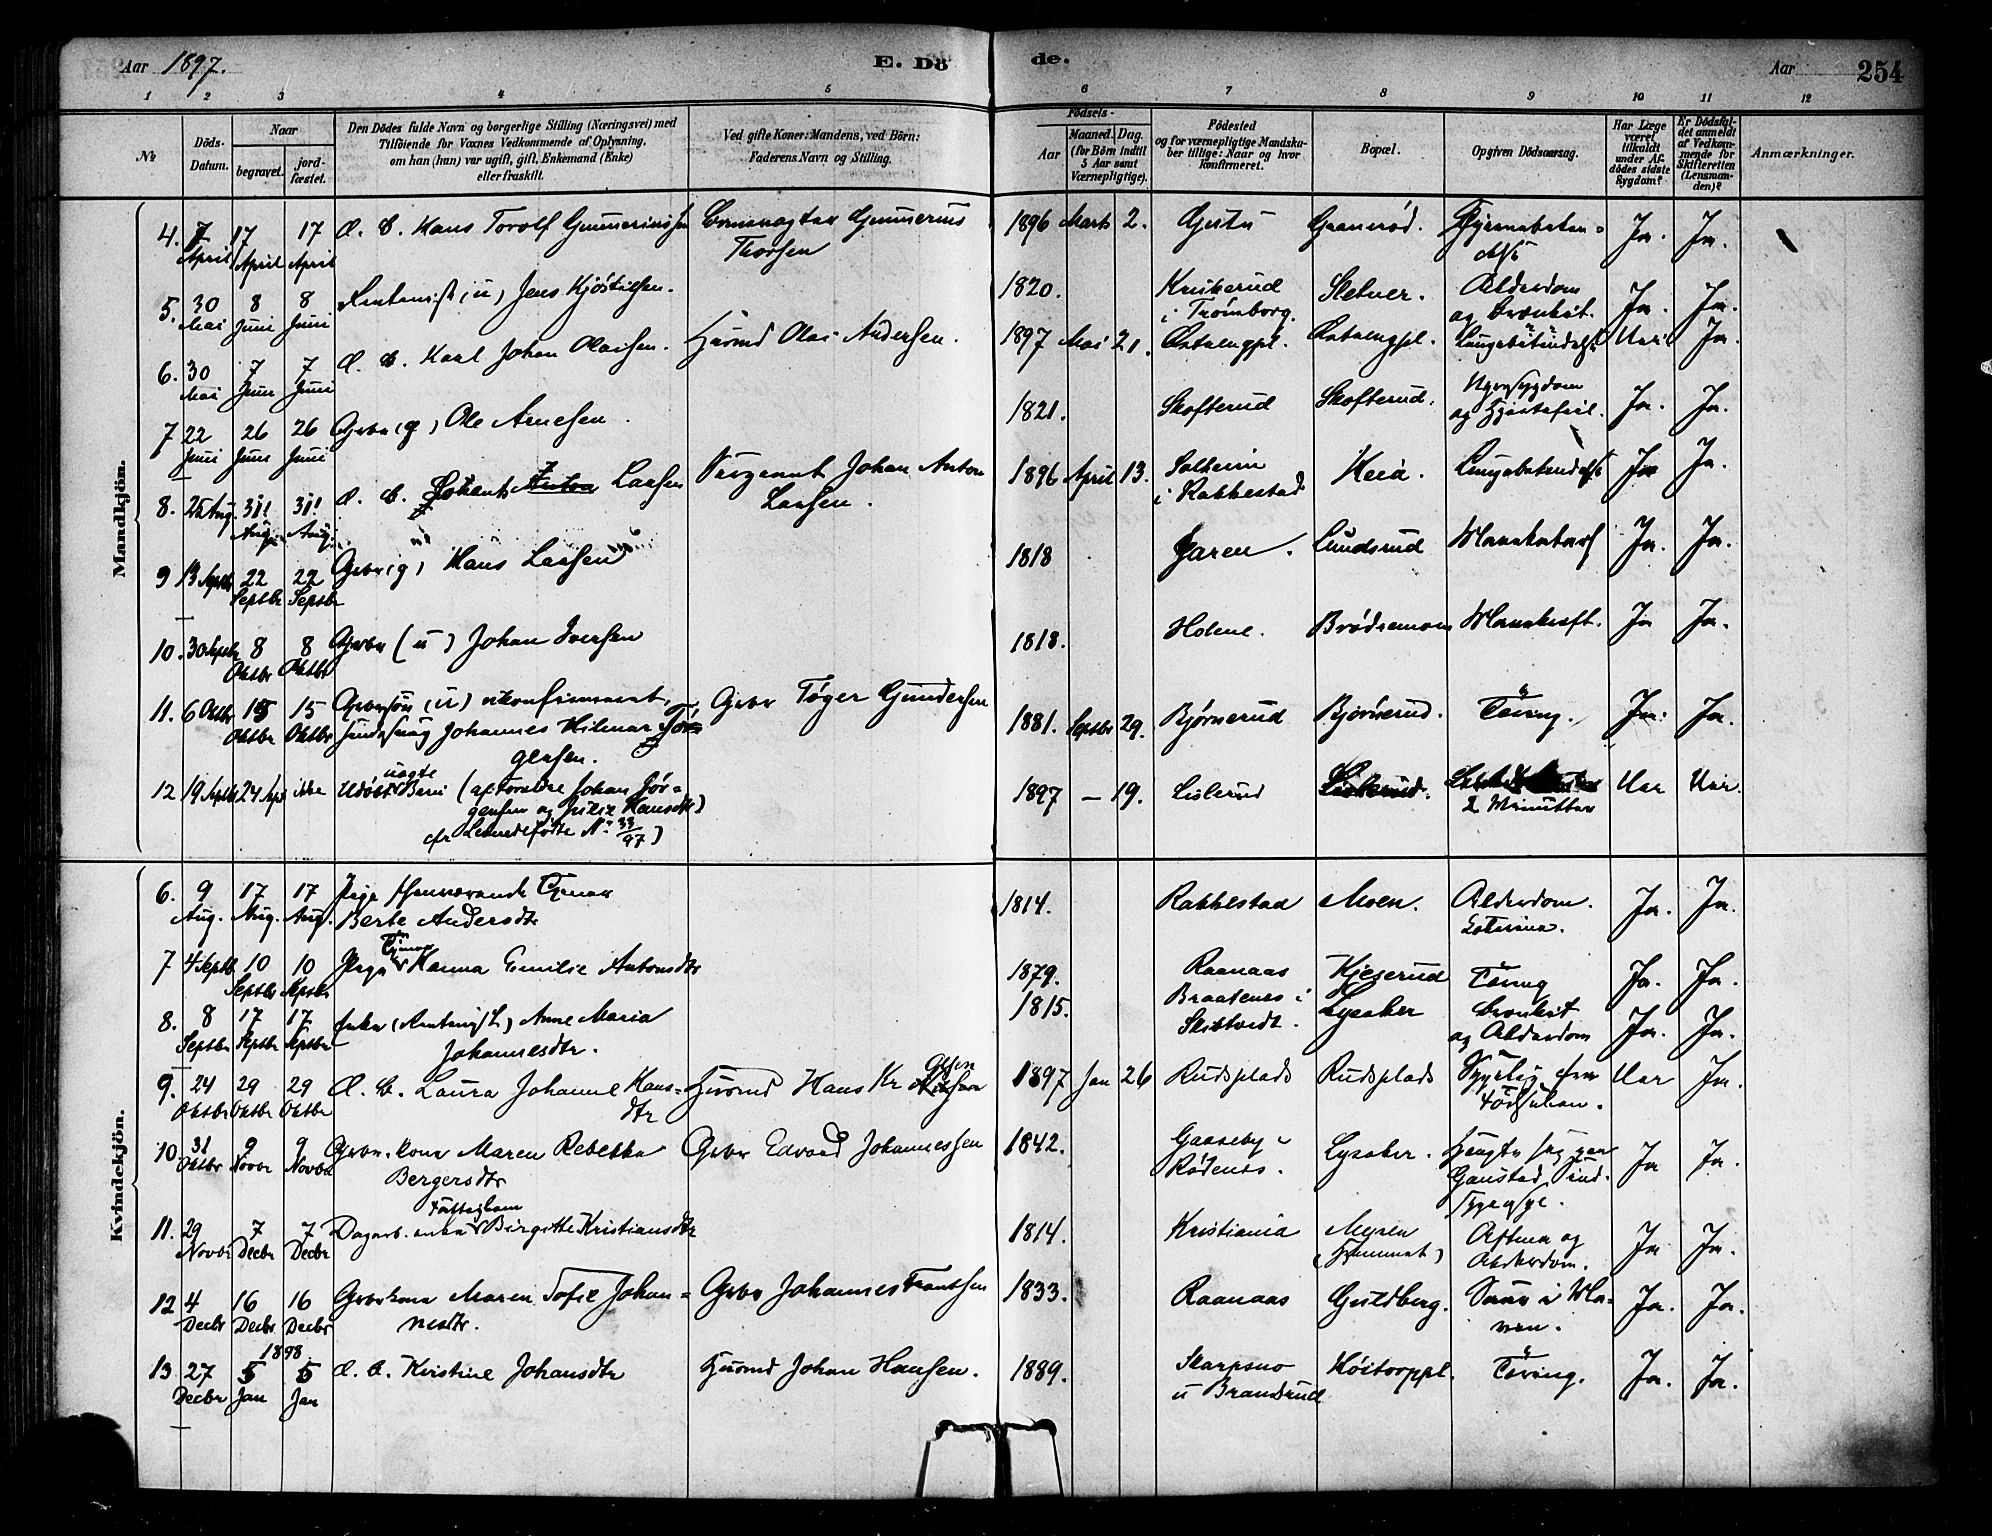 Aar 1897.
E. Dö
de.
Aar
254
1 2 3 4 5 6 7 8 9 10 11 12
No
Döds-Datum.
Naar
begravet.
jord-fæstet.
Den Dödes fulde Navn og borgerlige Stilling (Næringsvei) med
Tilföiende for Voxnes Vedkommende af Oplysning,
om han (hun) var ugift, gift, Enkemand (Enke)
eller fraskilt.
Ved gifte Koner: Mandens, ved Börn:
Faderens Navn og Stilling.
Födsels-
Aar
Maaned. Dag.
(for Börn indtil
5 Aar samt
Værnepligtige).
Födested
og for værnepligtige Mandska-
ber tillige: Naar og hvor
konfirmeret.
Bopæl.
Opgiven Dödsaarsag.
Har Læge
været
tilkaldt
under Af-
dödes sidste
Sygdom?
Er Dödsfal-
det anmeldt
af Vedkom-
mende for
Skifteretten
(Lensman-
den)?
Anmærkninger.
Mandkjön.
4. 7 April 17 April 17 April D. B. Hans Torolf Gunneriussen Gunnerius Thorsen 1896 Marts 2. Granerød. Ja. Ja.
5. 30 Mai 8 Juni 8 Juni (u) Jens Kjöstilsen. 1820. Krikerud i Trömborg. Sletner. Alderdom og Bronkit. Ja. Ja.
6. 30 Mai 7 Juni 7 Juni D. B. Karl Johan Olaisen. Husmd Olai Andersen. 1897 Mai 21. Lungebetændelse Nei Ja.
7 22 Juni 26 Juni 26 Juni Grbr (g) Ole Arnesen. 1821. Skofterud Skofterud. Nyresygdom og Hjertefeil. Ja. Ja.
8. 25 Aug. 31! Aug. 31! Aug. D. B. Johan Larsen Sergeant Johan Anton Larsen. 1896 April 13. Solheim i Rakkestad Heia. Lungebetændelse Ja Ja.
9 13 Septbr 22 Septbr 22 Septbr Grbr (g) Hans Larsen 1818 Haren. Lundsrud Mavekatarr Ja. Ja.
10. 30 Septbr 8 Oktbr 8 Oktbr Grbr (u) Johan Iversen 1818. Holene. Brödremoen Mavekræft. Ja Ja.
11. 6 Oktbr 15 Oktbr 15 Oktbr Grbrsön (u) ukonfirmeret, Johannes Hilmar Tör-
gersen. Grbr Töger Gundersen 1881. Septbr 29. Bjørnerud Bjørnerud. Tæring. Ja. Ja.
12 19 Septbr 24 Spt ikke Udöbt uægte Barn (af Forældre Johan Jör-
gensen og Hansdtr)
cfr Levendefödte No 33/97) 1897 — 19. Lislerud Lislerud. 2 Minutter Nei Nei.
Kvindekjön.
6. 9 Aug. 17 Aug. 17 Aug. Pige Tjener
Berte Andersdtr 1814. Rakkestad Moen. Alderdom. Ja. Ja.
7 4 Septb 10 Septbr 10 Septbr Pige Tjener Hanna Emilie Antonsdtr 1879. Raanaas Kjeserud Tæring Ja. Ja.
8. 8 Septbr 17 Septbr 17 Septbr Enke Anne Maria
Johannesdtr. 1815. Braatenes i Skiptvedt. Lysaker Bronkit og Alderdom Ja. Ja.
9. 24 Oktbr 29 Oktbr 29 Oktbr D. B. Laura Johanne Hans-
dtr Husmd Hans Kr Olsen 1897 Jan 26 Rudsplads Rudsplads Sygelig fra Födselen. Nei Ja.
10. 31 Oktbr 9 Novbr 9 Novbr Grbr. kone Maren Rebekka
Bergersdtr Grbr Edvard Johannessen 1842. Gaaseby i Rödenes. Lysaker. Gaustad Sind-
sygeasyl. Ja Ja.
11. 29 Novbr 7 Decbr 7 Decbr Dagarb. enke Fattiglem Birgitte Kristiansdtr 1814. Kristiania Myren Asthma og Alderdom. Ja Ja.
12 4 Decbr 16 Decbr 16 Decbr Grbrkone Maren Sofie Johan-
nesdtr. Grbr Johannes Frantsen 1833. Raanaas Guldberg. Saar i Ma-
ven. Ja. Ja.
13 27 Decbr 1898 5 Jan 5 Jan D. B. Kirstine Johansdtr Husmd Johan Hansen. 1889. Skarpsno u Brandsrud Höitorppl. Tæring. Ja. Ja.